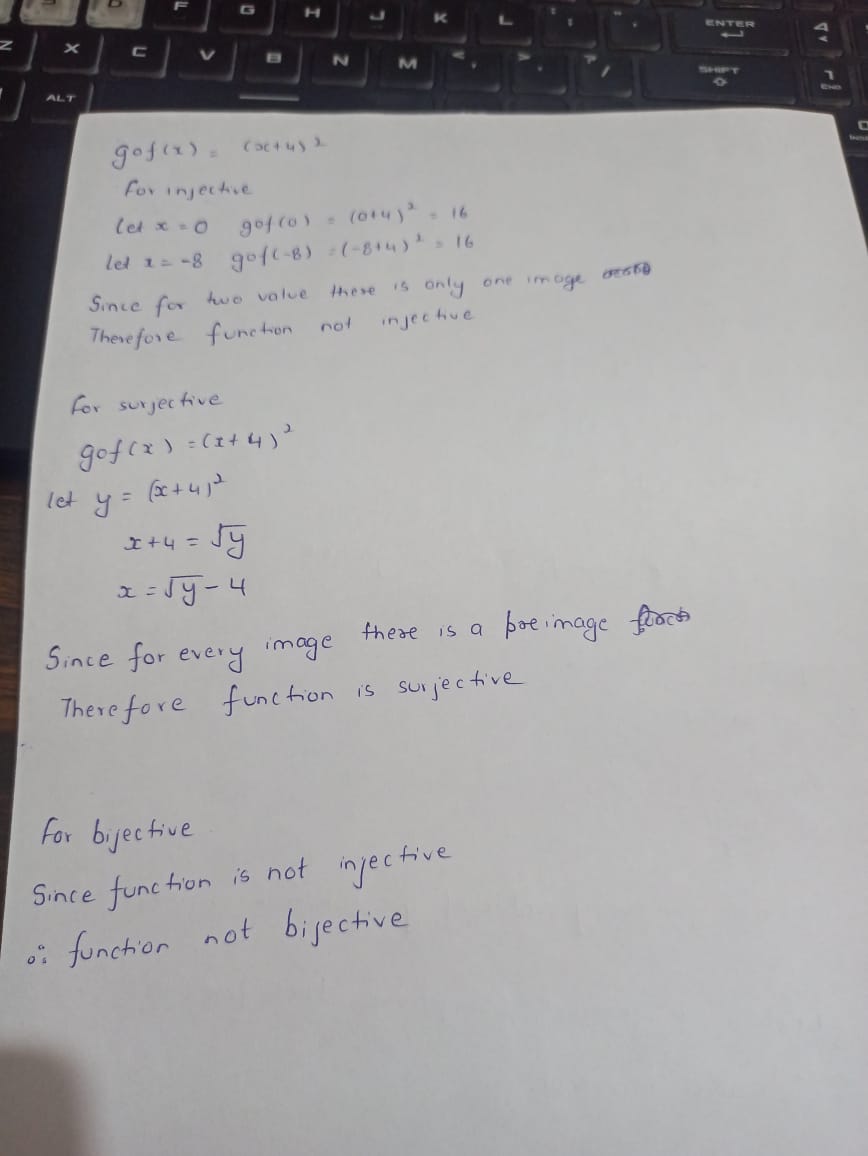 F G H J K L ENTER
Z X C V B N M SHIFT END
ALT
gof(x) = (x+4)²
For injective
let x = 0 gof(0) = (0+4)² = 16
let x = -8 gof(-8) = (-8+4)² = 16
Since for two value there is only one image
Therefore function not injective
For surjective
gof(x) = (x+4)²
let y = (x+4)²
x+4 = √y
x = √y - 4
Since for every image there is a preimage
Therefore function is surjective
For bijective
Since function is not injective
∴ function not bijective